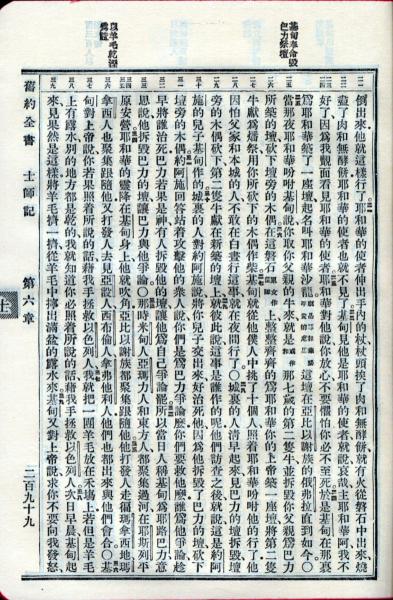 基甸奉命毀
巴力祭壇
以羊毛乾濕
爲證
倒出來他就這樣行了耶和華的使者伸出手內的杖杖頭挨了肉和無酵餅就有火從磐石中出來燒
盡了肉和無酵餅耶和華的使者也就不見了基甸見他是耶和華的使者就說哀哉主耶和華阿我不
好了因爲我覿面看見耶和華的使者耶和華對他說你放心不要懼怕你必不至死於是基甸在那裏
爲耶和華築了一座壇起名叫耶和華沙龍這壇在亞比以謝族的俄弗拉直到如今○
當那夜耶和華吩咐基甸說你取你父親的牛來就是那七歲的第二隻牛並拆毀你父親爲巴力
所築的壇砍下壇旁的木偶在這磐石上整整齊齊的爲耶和華你的上帝築一座壇將第二隻
牛獻爲燔祭用你所砍下的木偶作柴基甸就從他僕人中挑了十個人照着耶和華吩咐他的行了他
因怕父家和本城的人不敢在白晝行這事就在夜間行了○城裏的人清早起來見巴力的壇毀壞壇
旁的木偶砍下第二隻牛獻在新築的壇上就彼此說這事是誰作的呢他們訪查之後就說這是約阿
施的兒子基甸作的城裏的人對約阿施說將你兒子交出來好治死他因爲他拆毀了巴力的壇砍下
壇旁的木偶約阿施回答站着攻擊他的衆人說你們是爲巴力爭論麽你們要救他麽誰爲他爭論趁
早將誰治死巴力若果是神有人拆毀他的壇讓他爲自己爭論罷所以當日人稱基甸爲耶路巴力意
思說他拆毀巴力的壇讓巴力與他爭論○那時米甸人亞瑪力人和東方人都聚集過河在耶斯列平
原安營耶和華的靈降在基甸身上他就吹角亞比以謝族都聚集跟隨他他打發人走遍瑪拿西地瑪
拿西人也聚集跟隨他又打發人去見亞設人西布倫人拿弗他利人他們也都出來與他們會合○基
甸對上帝說你若果照着所說的話藉我手拯救以色列人我就把一團羊毛放在禾場上若但是羊毛
上有露水別的地方都是乾的我就知道你必照着所說的話藉我手拯救以色列人次日早晨基甸起
來見果然是這樣將羊毛擠一擠從羊毛中擰出滿盆的露水來基甸又對上帝說求你不要向我發怒
舊約全書 士師記 第六章 二百九十九
士